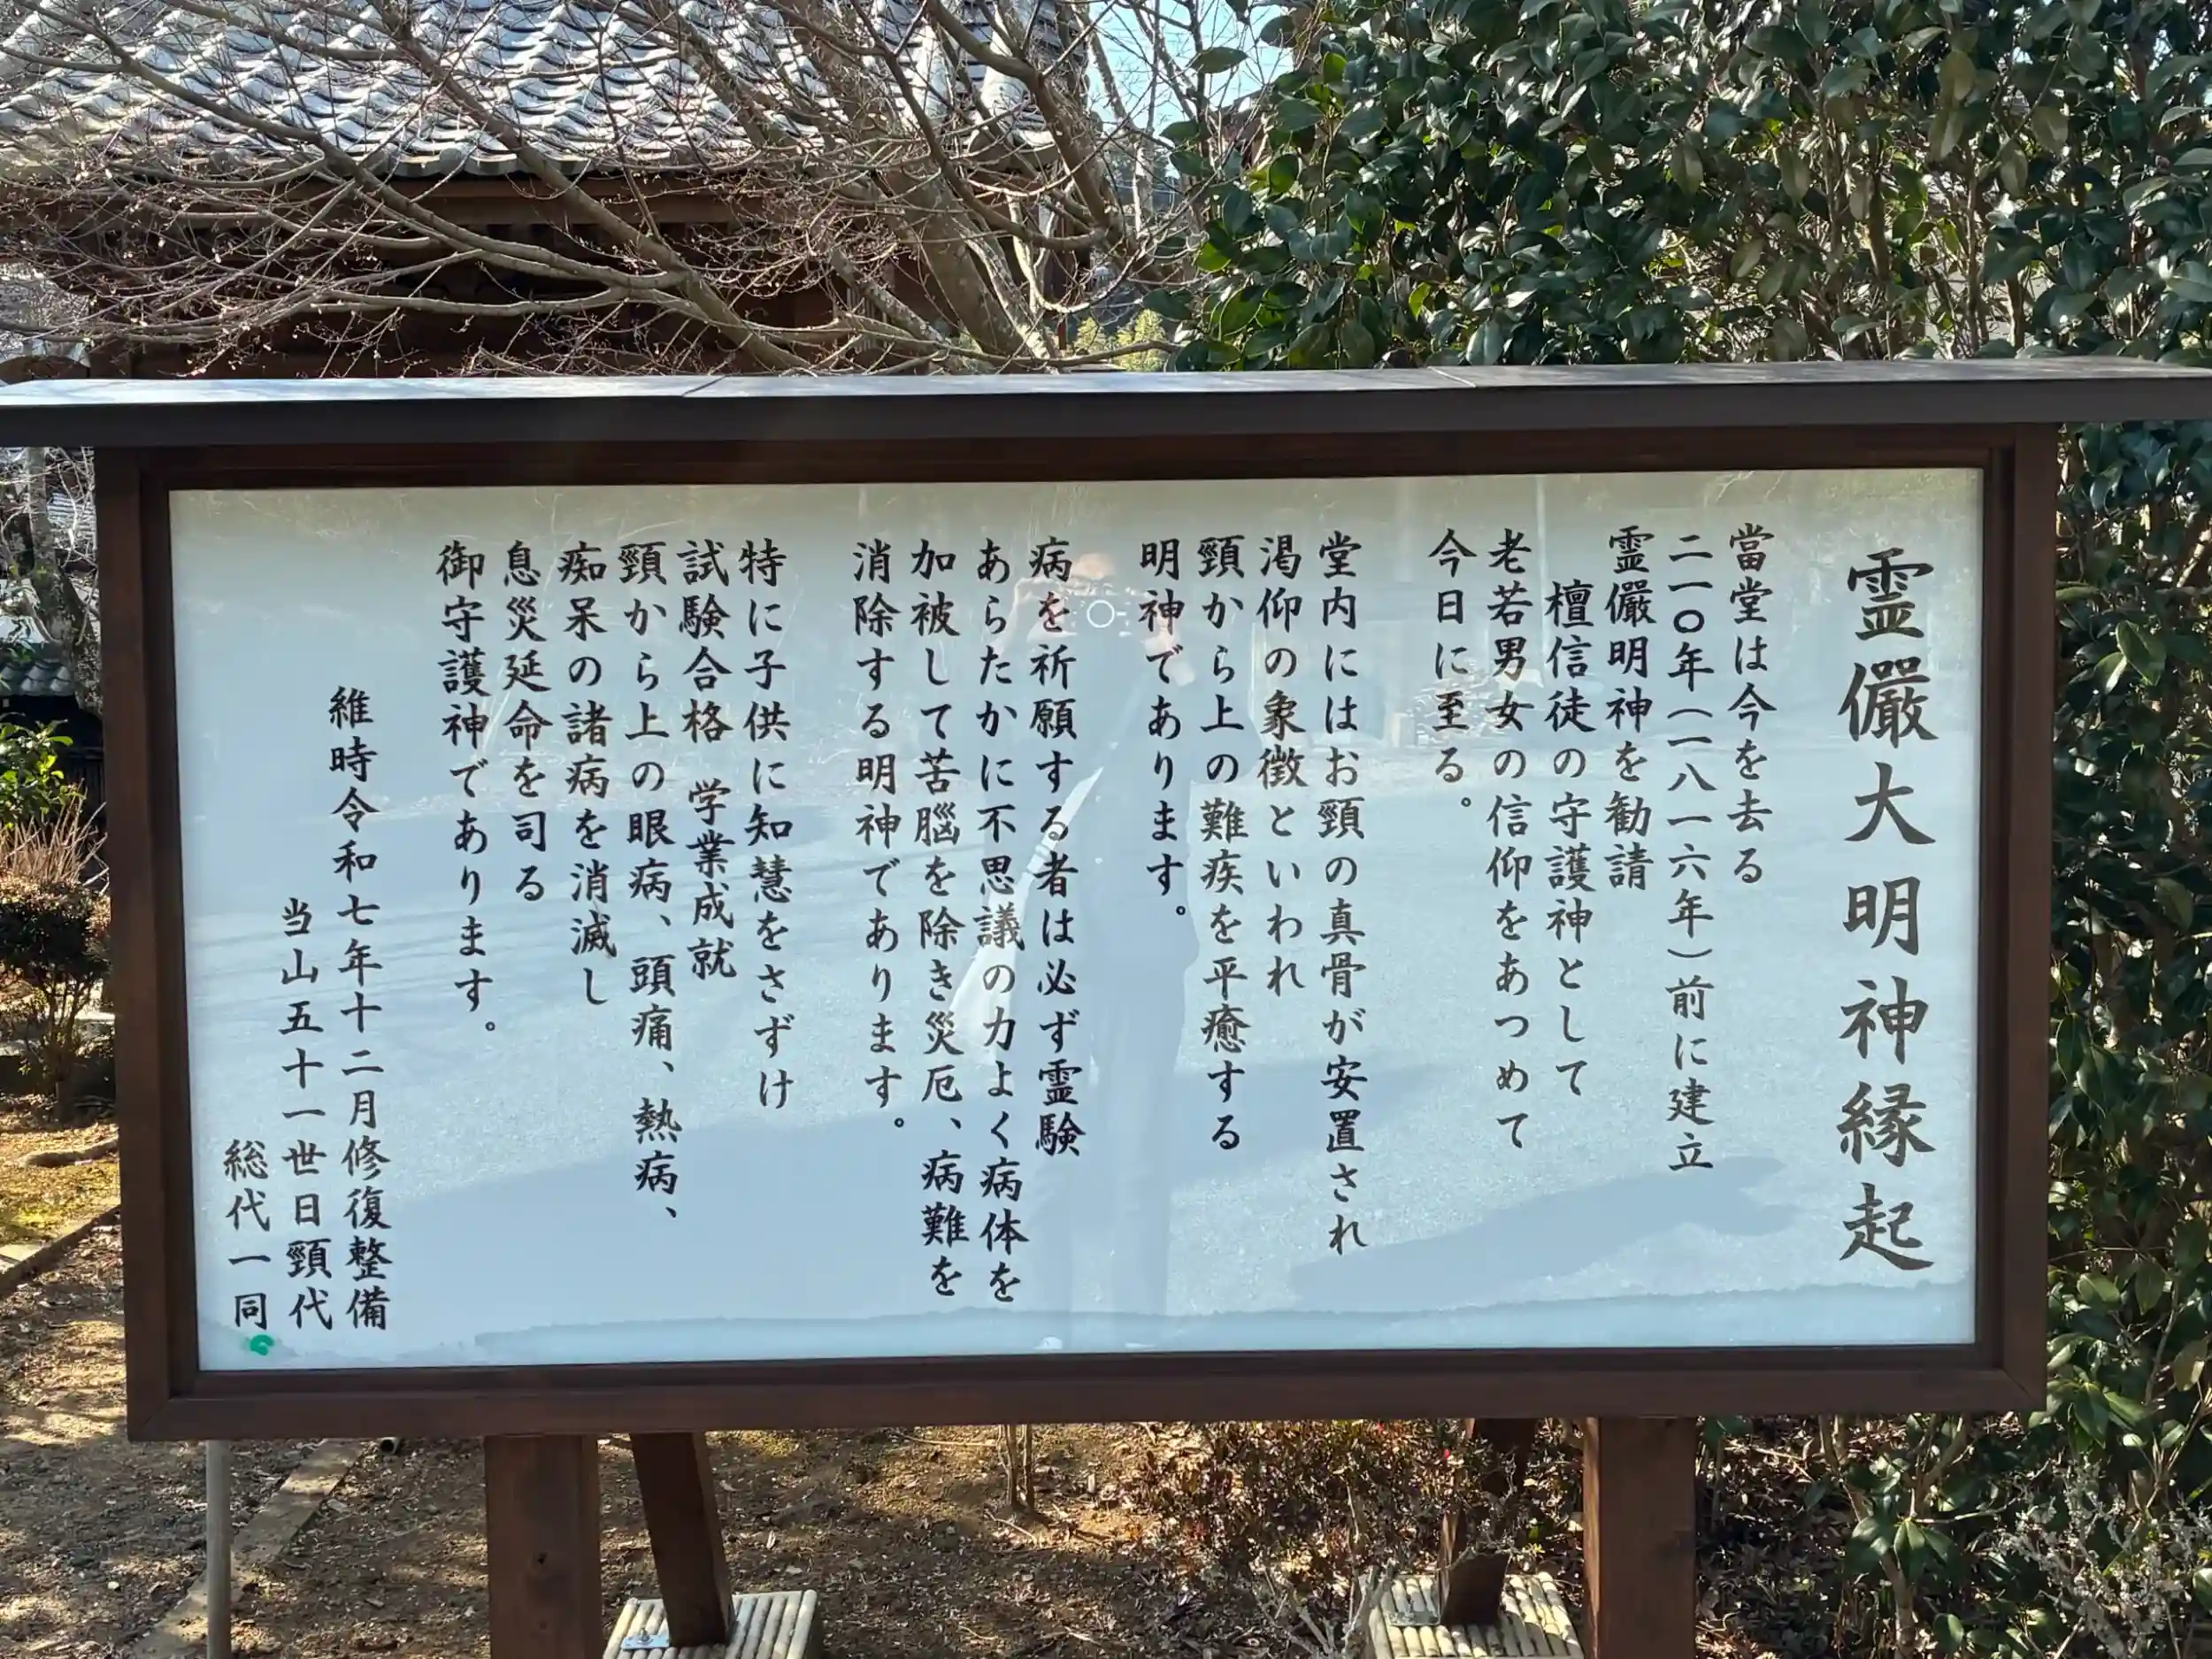 霊儼大明神縁起
當堂は今を去る
二一〇年（一八一六年）前に建立
霊儼明神を勧請
檀信徒の守護神として
老若男女の信仰をあつめて
今日に至る。
堂内にはお頸の真骨が安置され
渇仰の象徴といわれ
頸から上の難疾を平癒する
明神であります。
病を祈願する者は必ず霊験
あらたかに不思議の力よく病体を
加被して苦脳を除き災厄、病難を
消除する明神であります。
特に子供に知慧をさずけ
試験合格 学業成就
頸から上の眼病、頭痛、熱病、
痴呆の諸病を消滅し
息災延命を司る
御守護神であります。
維時令和七年十二月修復整備
当山五十一世日頸代
総代一同